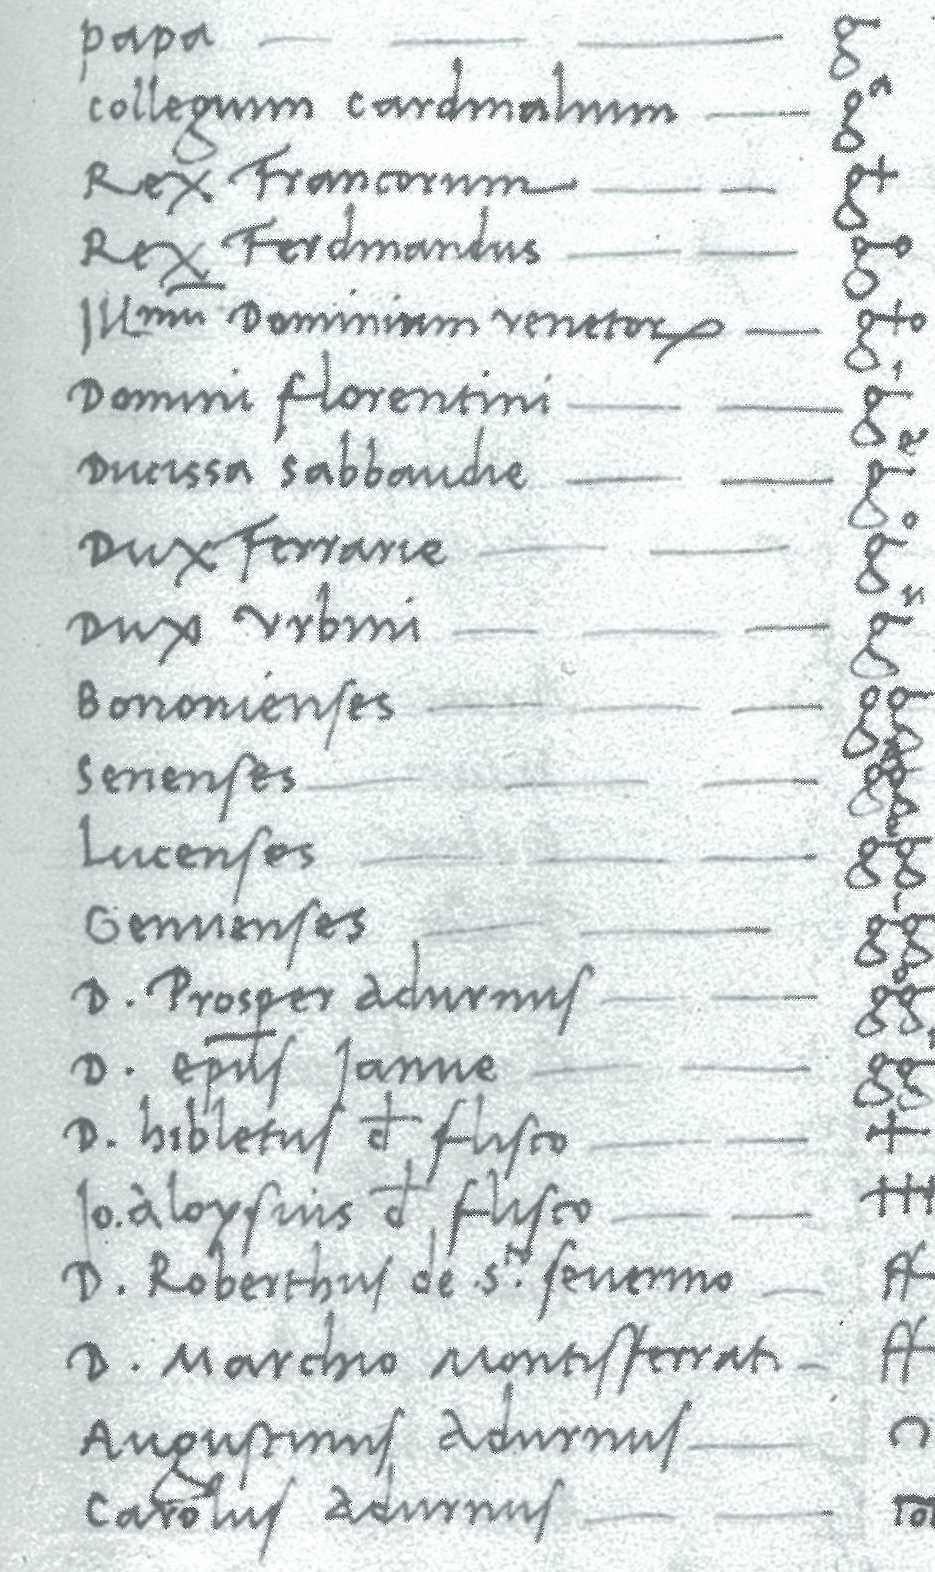 papa
collegium cardinalium
Rex Francorum
Rex Ferdinandus
Illmu Dominium venetorꝝ
Domini florentini
Ducissa Sabbaudie
Dux Ferrarie
Dux Urbini
Bononienses
Senenses
Lucenses
Genuenses
D. Prosper adurnus
D. epus Janue
D. hibletus d flisco
Jo. aloysius d flisco
D. Roberthus de S.to severino
D. Marchio Montisferrati
Augustinus adurnus
Carolus adurnus